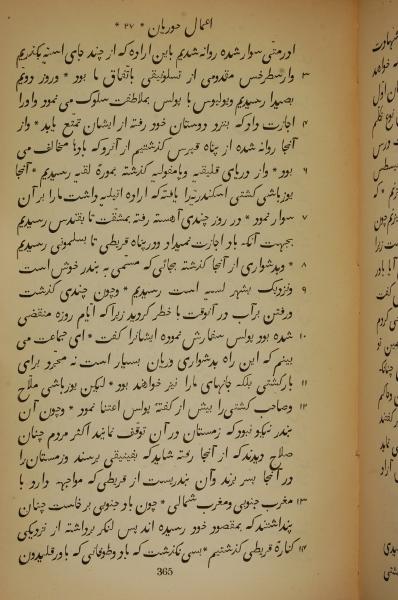 اعمال حوریان * ۲۷ *
ادرمتی سوار شده روانه شدیم باین اراده که از چند جای آسیه بگذریم
۳ وارسطرخس مقدونی از تسلونیقی باتفاق ما بود * وروز دویم
بصیدا رسیدیم ویولیوس با پولس بملاطفت سلوک می نمود واورا
۴ اجازت داد که بنزد دوستان خود رفته از ایشان تمتع یابد * واز
آنجا روانه شده از پناه قپرس گذشتیم از آنرو که بادها مخالف می
۶ بود * واز دریای قلیقیه وپامفولیه گذشته بموره لقیه رسیدیم * آنجا
یوزباشی کشتی اسکندریه را یافته که اراده ایتلیه داشت مارا بر آن
۷ سوار نمود * در روز چندی آهسته رفته بمشقت تا بقنیدس رسیدیم
بجهت آنکه باد اجازت نمیداد ودر پناه قریطی تا بسلمونی رسیدیم
۸ * وبدشواری از آنجا گذشته بجائی که مسمی به بندر خوش است
۹ ونزدیک بشهر لسیه است رسیدیم * وچون چندی گذشت
ورفتن بر آب در آنوقت با خطر گردید زیرا که ایام روزه منقضی
۱۰ شده بود پولس سفارش نموده ایشانرا گفت * ای جماعت می
بینم که این راه بدشواری وزیان بسیار است نه مجرد برای
۱۱ بار کشتی بلکه جانهای مارا نیز خواهند بود * لیکن یوزباشی ملاح
۱۲ وصاحب کشتی را بیش از گفته پولس اعتنا نمود * وچون آن
بندر نیکو نبود که زمستان در آن توقف نمایند اکثر مردم چنان
صلاح دیدند که از آنجا رفته شاید که بفینیقی برسند وزمستان را
در آنجا بسر برند وآن بندریست از قریطی که مواجهه دارد با
۱۳ مغرب جنوبی ومغرب شمالی * چون باد جنوبی برخاست چنان
پنداشتند که بمقصود خود رسیده اند پس لنکر برداشته از نزدیکی
۱۴ کناره قریطی گذشتیم * بسی نگذشت که باد وطوفانی که باورقلیدون
365